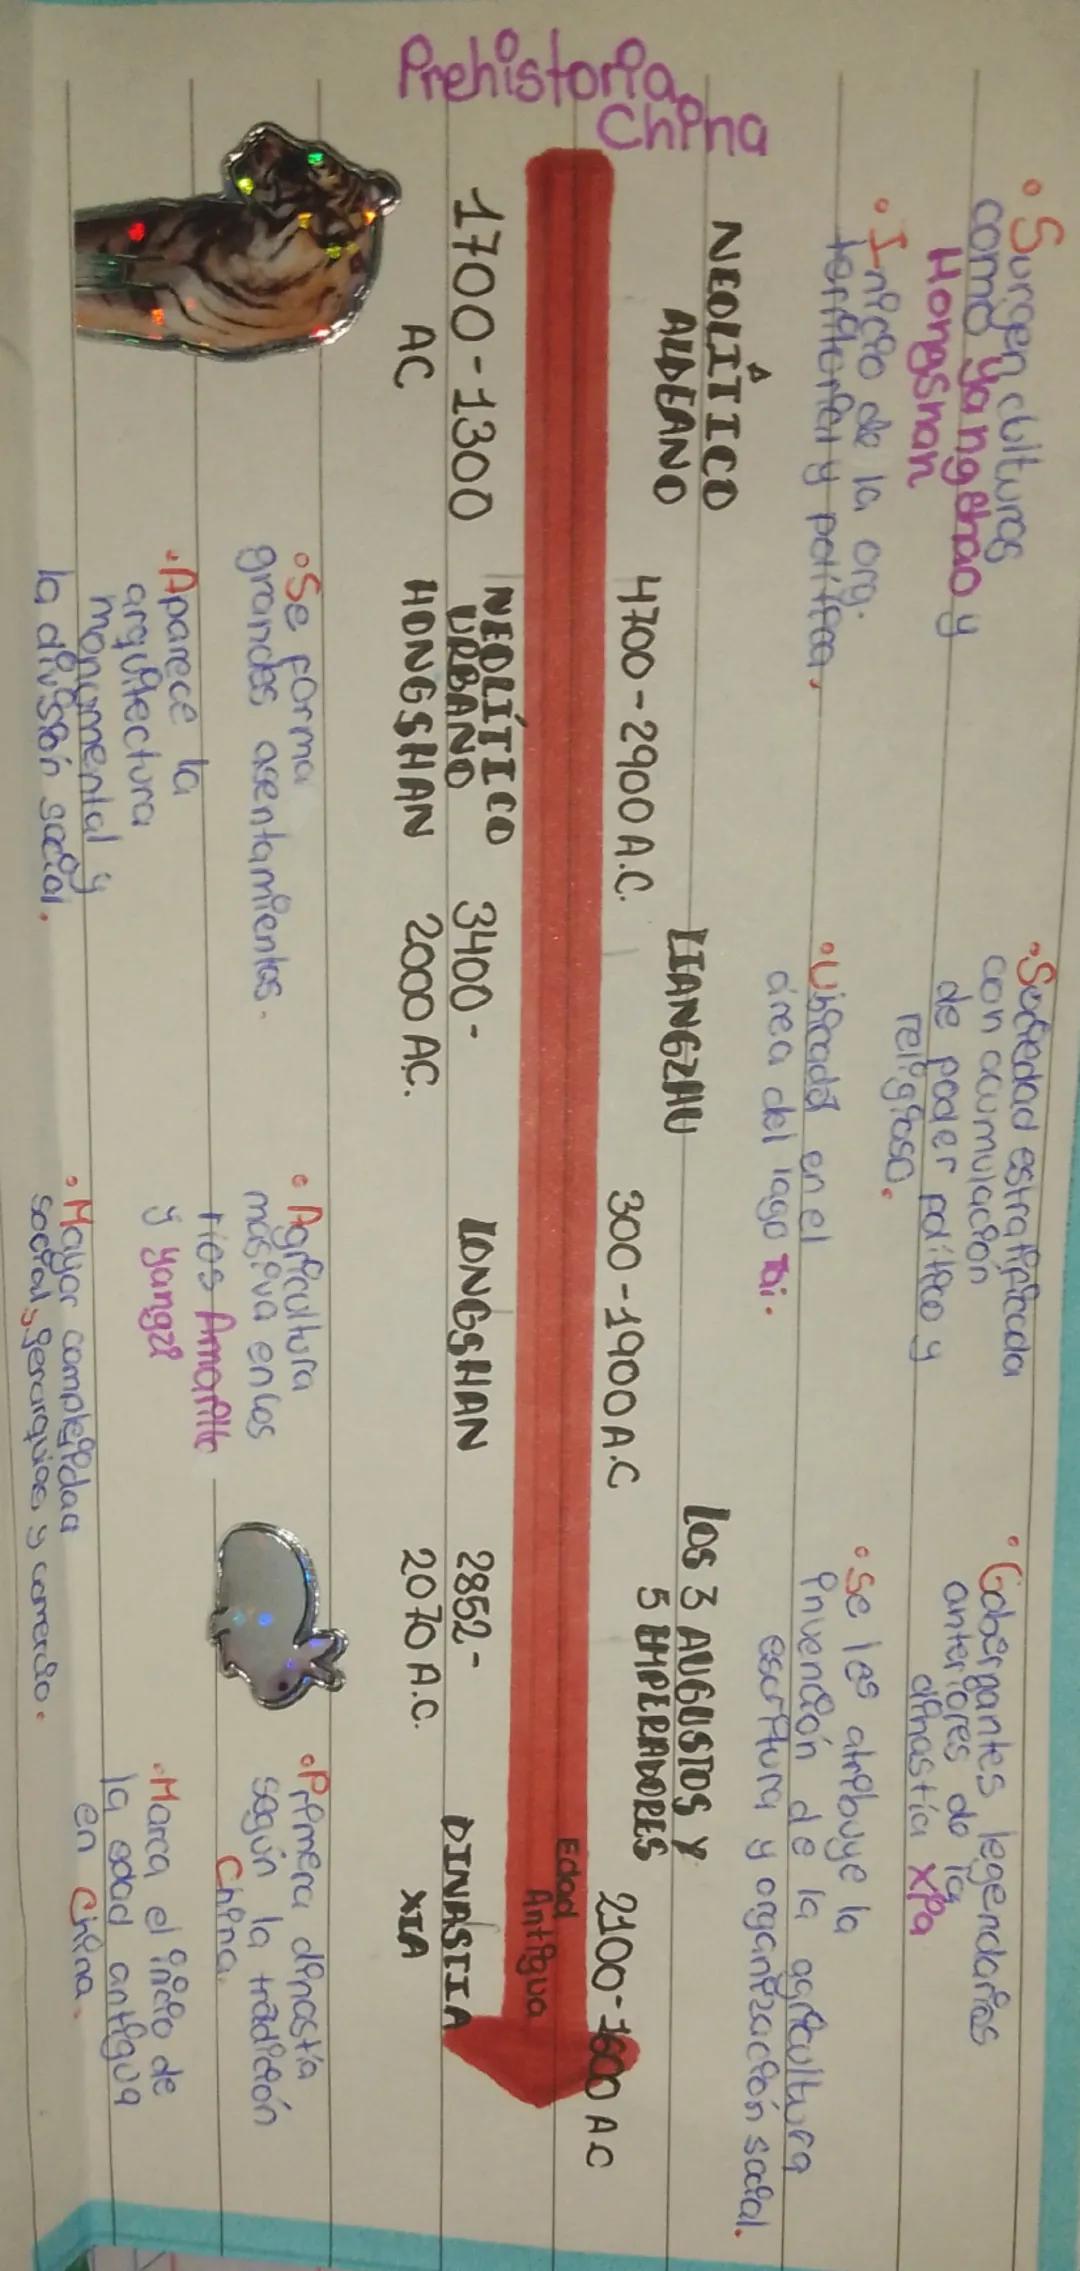 Prehistoria
China
• Surgen culturas
como Yangshao y
Hongshan
• Inicio de la org.
territorial y política.
NEOLÍTICO
ALDEANO
1700-1300
AC
4700-2900 A.C.
NEOLÍTICO
URBANO
HONGSHAN
• Se forma
grandes asentamientos.
• Aparece la
arquitectura
monumental y
la división social.
• Sociedad estratificada
con acumulación
de poder político y
religioso.
• Ubicada en el
área del lago Tai.
LIANGZHU
3400-
2000 AC.
300-1900 A.C
LONGSHAN
• Agricultura
masiva en los
ríos Amarillo
y Yangzi
• Mayor complejidad
social, gerarquias y comercio.
• Gobergantes legendarios
anteriores de la
dinastía Xia
• Se les atribuye la
invención de la agricultura
escritura y organización social.
LOS 3 AUGUSTOS Y
5 EMPERADORES
2852-
2070 A.C.
2100-1600 AC
Edad
Antigua
DINASTIA
XIA
• Primera dinastía
según la tradición
China.
• Marca el inicio de
la edad antigua
en China.